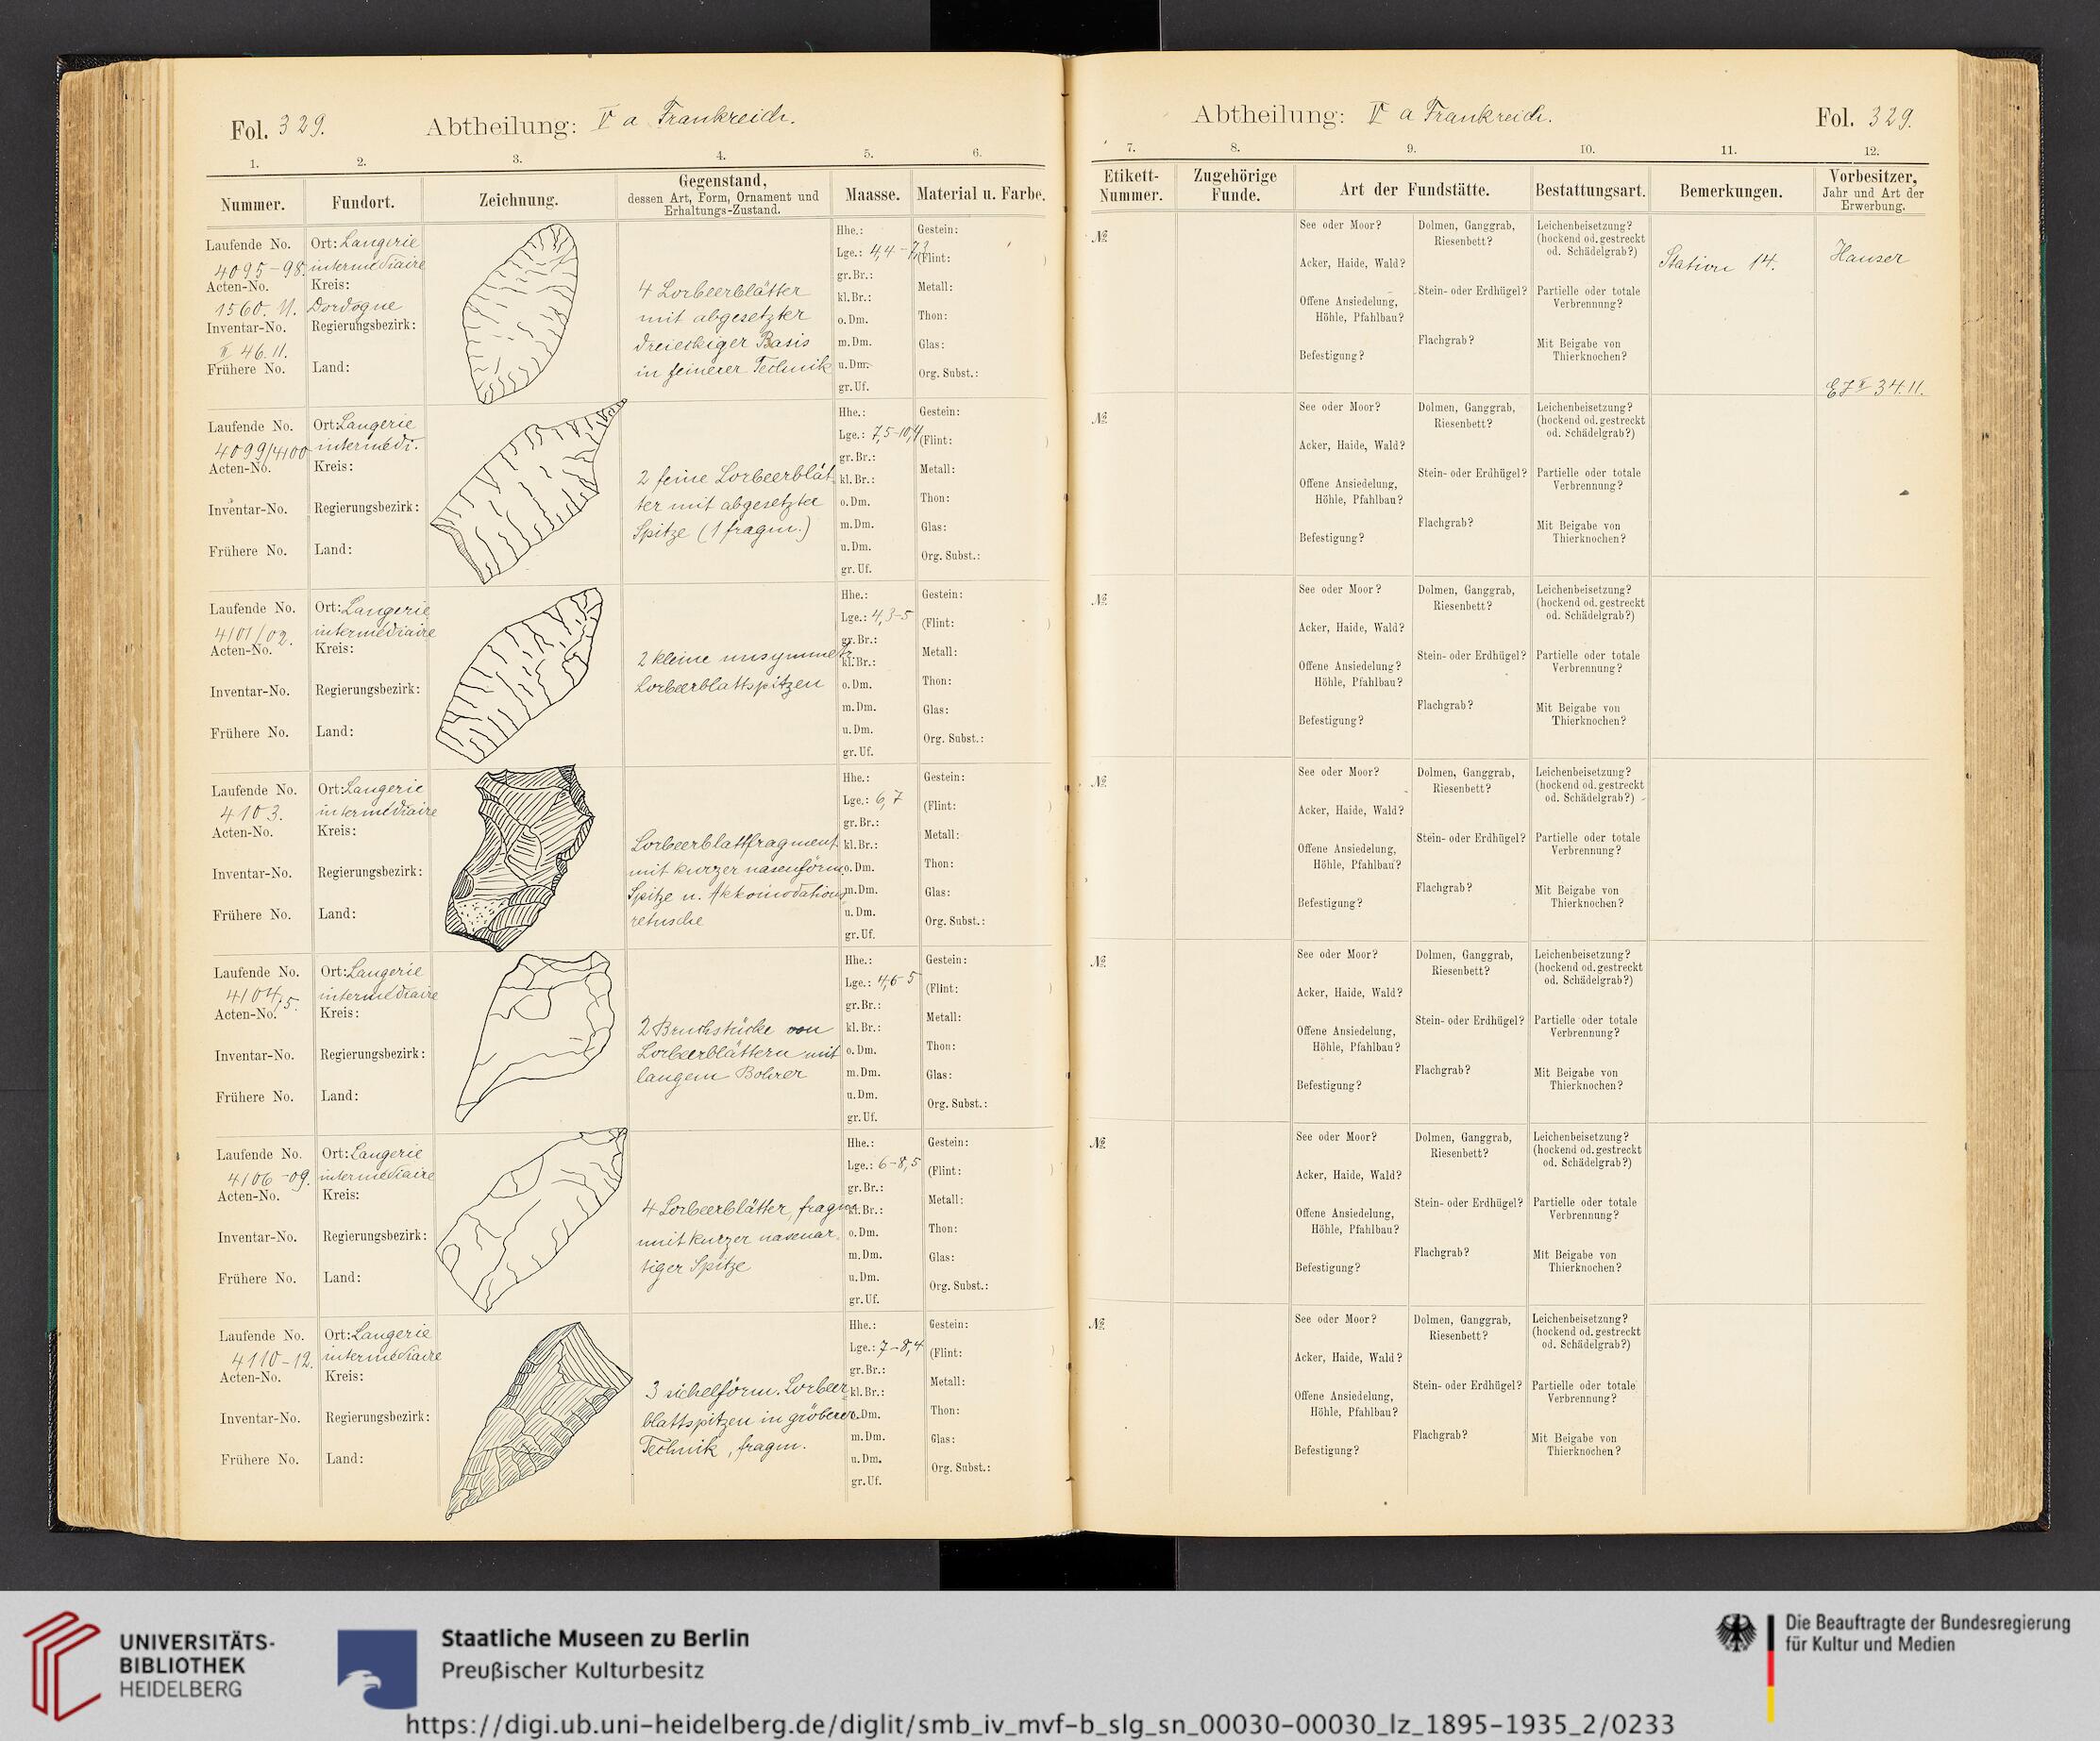 Fol. 329.
Abtheilung: V a Frankreich.
1. 2. 3. 4. 5. 6.
Nummer. Fundort. Zeichnung. Gegenstand, dessen Art, Form, Ornament und Erhaltungs-Zustand. Maasse. Material u. Farbe.
Laufende No. 4095-98.
Acten-No. 1560. 11.
Inventar-No. II 46.11.
Frühere No.
Ort: Laugerie
intermédiaire
Kreis:
Dordogne
Regierungsbezirk:
Land:
4 Lorbeerblätter
mit abgesetzter
dreieckiger Basis
in feinerer Technik
Hhe.:
Lge.: 4,4-7,3
gr. Br.:
kl. Br.:
o. Dm.
m. Dm.
u. Dm.
gr. Uf.
Gestein:
(Flint: )
Metall:
Thon:
Glas:
Org. Subst.:
Laufende No. 4099/4100
Acten-No.
Inventar-No.
Frühere No.
Ort: Laugerie
intermédi.
Kreis:
Regierungsbezirk:
Land:
2 feine Lorbeerblät
ter mit abgesetzter
Spitze (1 fragm.)
Hhe.:
Lge.: 7,5-10,4
gr. Br.:
kl. Br.:
o. Dm.
m. Dm.
u. Dm.
gr. Uf.
Gestein:
(Flint: )
Metall:
Thon:
Glas:
Org. Subst.:
Laufende No. 4101/02.
Acten-No.
Inventar-No.
Frühere No.
Ort: Laugerie
intermédiaire
Kreis:
Regierungsbezirk:
Land:
2 kleine unsymmetr.
Lorbeerblattspitzen
Hhe.:
Lge.: 4,3-5
gr. Br.:
kl. Br.:
o. Dm.
m. Dm.
u. Dm.
gr. Uf.
Gestein:
(Flint: )
Metall:
Thon:
Glas:
Org. Subst.:
Laufende No. 4103.
Acten-No.
Inventar-No.
Frühere No.
Ort: Laugerie
intermédiaire
Kreis:
Regierungsbezirk:
Land:
Lorbeerblattfragment
mit kurzer nasenförm.
Spitze u. Akkomodations
retusche
Hhe.:
Lge.: 6,7
gr. Br.:
kl. Br.:
o. Dm.
m. Dm.
u. Dm.
gr. Uf.
Gestein:
(Flint: )
Metall:
Thon:
Glas:
Org. Subst.:
Laufende No. 4104/5.
Acten-No.
Inventar-No.
Frühere No.
Ort: Laugerie
intermédiaire
Kreis:
Regierungsbezirk:
Land:
2 Bruchstücke von
Lorbeerblättern mit
langem Bohrer
Hhe.:
Lge.: 4,6-5
gr. Br.:
kl. Br.:
o. Dm.
m. Dm.
u. Dm.
gr. Uf.
Gestein:
(Flint: )
Metall:
Thon:
Glas:
Org. Subst.:
Laufende No. 4106-09.
Acten-No.
Inventar-No.
Frühere No.
Ort: Laugerie
intermédiaire
Kreis:
Regierungsbezirk:
Land:
4 Lorbeerblätter, fragm.
mit kurzer nasenar
tiger Spitze
Hhe.:
Lge.: 6-8,5
gr. Br.:
kl. Br.:
o. Dm.
m. Dm.
u. Dm.
gr. Uf.
Gestein:
(Flint: )
Metall:
Thon:
Glas:
Org. Subst.:
Laufende No. 4110-12.
Acten-No.
Inventar-No.
Frühere No.
Ort: Laugerie
intermédiaire
Kreis:
Regierungsbezirk:
Land:
3 sichelförm. Lorbeer
blattspitzen in gröberer
Technik, fragm.
Hhe.:
Lge.: 7-8,4
gr. Br.:
kl. Br.:
o. Dm.
m. Dm.
u. Dm.
gr. Uf.
Gestein:
(Flint: )
Metall:
Thon:
Glas:
Org. Subst.:
Abtheilung: V a Frankreich.
Fol. 329.
7. 8. 9. 10. 11. 12.
Etikett-Nummer. Zugehörige Funde. Art der Fundstätte. Bestattungsart. Bemerkungen. Vorbesitzer, Jahr und Art der Erwerbung.
№
See oder Moor?
Acker, Haide, Wald?
Offene Ansiedelung,
Höhle, Pfahlbau?
Befestigung?
Dolmen, Ganggrab,
Riesenbett?
Stein- oder Erdhügel?
Flachgrab?
Leichenbeisetzung?
(hockend od. gestreckt
od. Schädelgrab?)
Partielle oder totale
Verbrennung?
Mit Beigabe von
Thierknochen?
Station 14.
Hauser
EJ II 34.11.
№
See oder Moor?
Acker, Haide, Wald?
Offene Ansiedelung,
Höhle, Pfahlbau?
Befestigung?
Dolmen, Ganggrab,
Riesenbett?
Stein- oder Erdhügel?
Flachgrab?
Leichenbeisetzung?
(hockend od. gestreckt
od. Schädelgrab?)
Partielle oder totale
Verbrennung?
Mit Beigabe von
Thierknochen?
№
See oder Moor?
Acker, Haide, Wald?
Offene Ansiedelung?
Höhle, Pfahlbau?
Befestigung?
Dolmen, Ganggrab,
Riesenbett?
Stein- oder Erdhügel?
Flachgrab?
Leichenbeisetzung?
(hockend od. gestreckt
od. Schädelgrab?)
Partielle oder totale
Verbrennung?
Mit Beigabe von
Thierknochen?
№
See oder Moor?
Acker, Haide, Wald?
Offene Ansiedelung,
Höhle, Pfahlbau?
Befestigung?
Dolmen, Ganggrab,
Riesenbett?
Stein- oder Erdhügel?
Flachgrab?
Leichenbeisetzung?
(hockend od. gestreckt
od. Schädelgrab?)
Partielle oder totale
Verbrennung?
Mit Beigabe von
Thierknochen?
№
See oder Moor?
Acker, Haide, Wald?
Offene Ansiedelung,
Höhle, Pfahlbau?
Befestigung?
Dolmen, Ganggrab,
Riesenbett?
Stein- oder Erdhügel?
Flachgrab?
Leichenbeisetzung?
(hockend od. gestreckt
od. Schädelgrab?)
Partielle oder totale
Verbrennung?
Mit Beigabe von
Thierknochen?
№
See oder Moor?
Acker, Haide, Wald?
Offene Ansiedelung,
Höhle, Pfahlbau?
Befestigung?
Dolmen, Ganggrab,
Riesenbett?
Stein- oder Erdhügel?
Flachgrab?
Leichenbeisetzung?
(hockend od. gestreckt
od. Schädelgrab?)
Partielle oder totale
Verbrennung?
Mit Beigabe von
Thierknochen?
№
See oder Moor?
Acker, Haide, Wald?
Offene Ansiedelung,
Höhle, Pfahlbau?
Befestigung?
Dolmen, Ganggrab,
Riesenbett?
Stein- oder Erdhügel?
Flachgrab?
Leichenbeisetzung?
(hockend od. gestreckt
od. Schädelgrab?)
Partielle oder totale
Verbrennung?
Mit Beigabe von
Thierknochen?
UNIVERSITÄTS-
BIBLIOTHEK
HEIDELBERG
Staatliche Museen zu Berlin
Preußischer Kulturbesitz
Die Beauftragte der Bundesregierung
für Kultur und Medien
https://digi.ub.uni-heidelberg.de/diglit/smb_iv_mvf-b_slg_sn_00030-00030_lz_1895-1935_2/0233